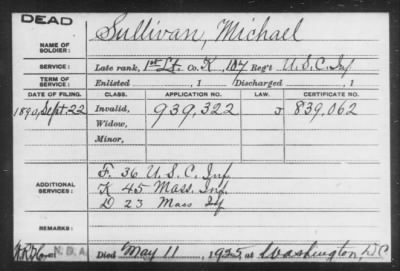 DEAD
NAME OF SOLDIER: Sullivan, Michael
SERVICE: Late rank, 1st Lt. Co. K, 107 Reg't U.S.C. Inf
TERM OF SERVICE: Enlisted , 1 Discharged , 1
DATE OF FILING. CLASS. APPLICATION NO. LAW. CERTIFICATE NO.
1890, Sept. 22 Invalid, 939,322 J 839,062
Widow,
Minor,
ADDITIONAL SERVICES: F. 36 U.S.C. Inf.
K 45 Mass. Inf.
D 23 Mass Inf
REMARKS:
N.D.A. Died May 11, 1925, at Washington, DC